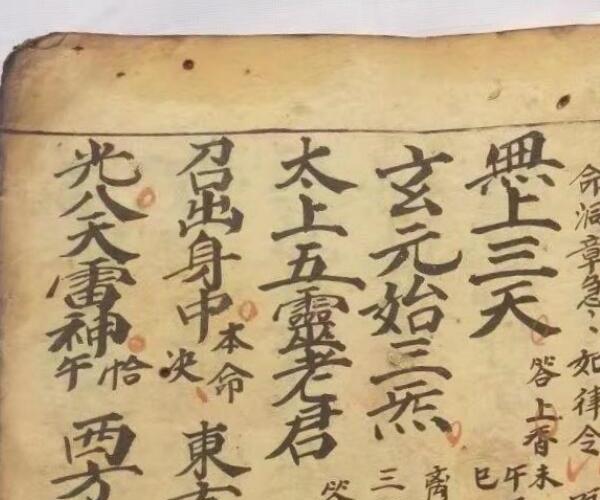 命洞章急〻如律令
無上三天 答上香 未午巳
玄元始三炁 三
太上五靈老君
召出身中 本命决 東
光八天雷神 恰午 西方